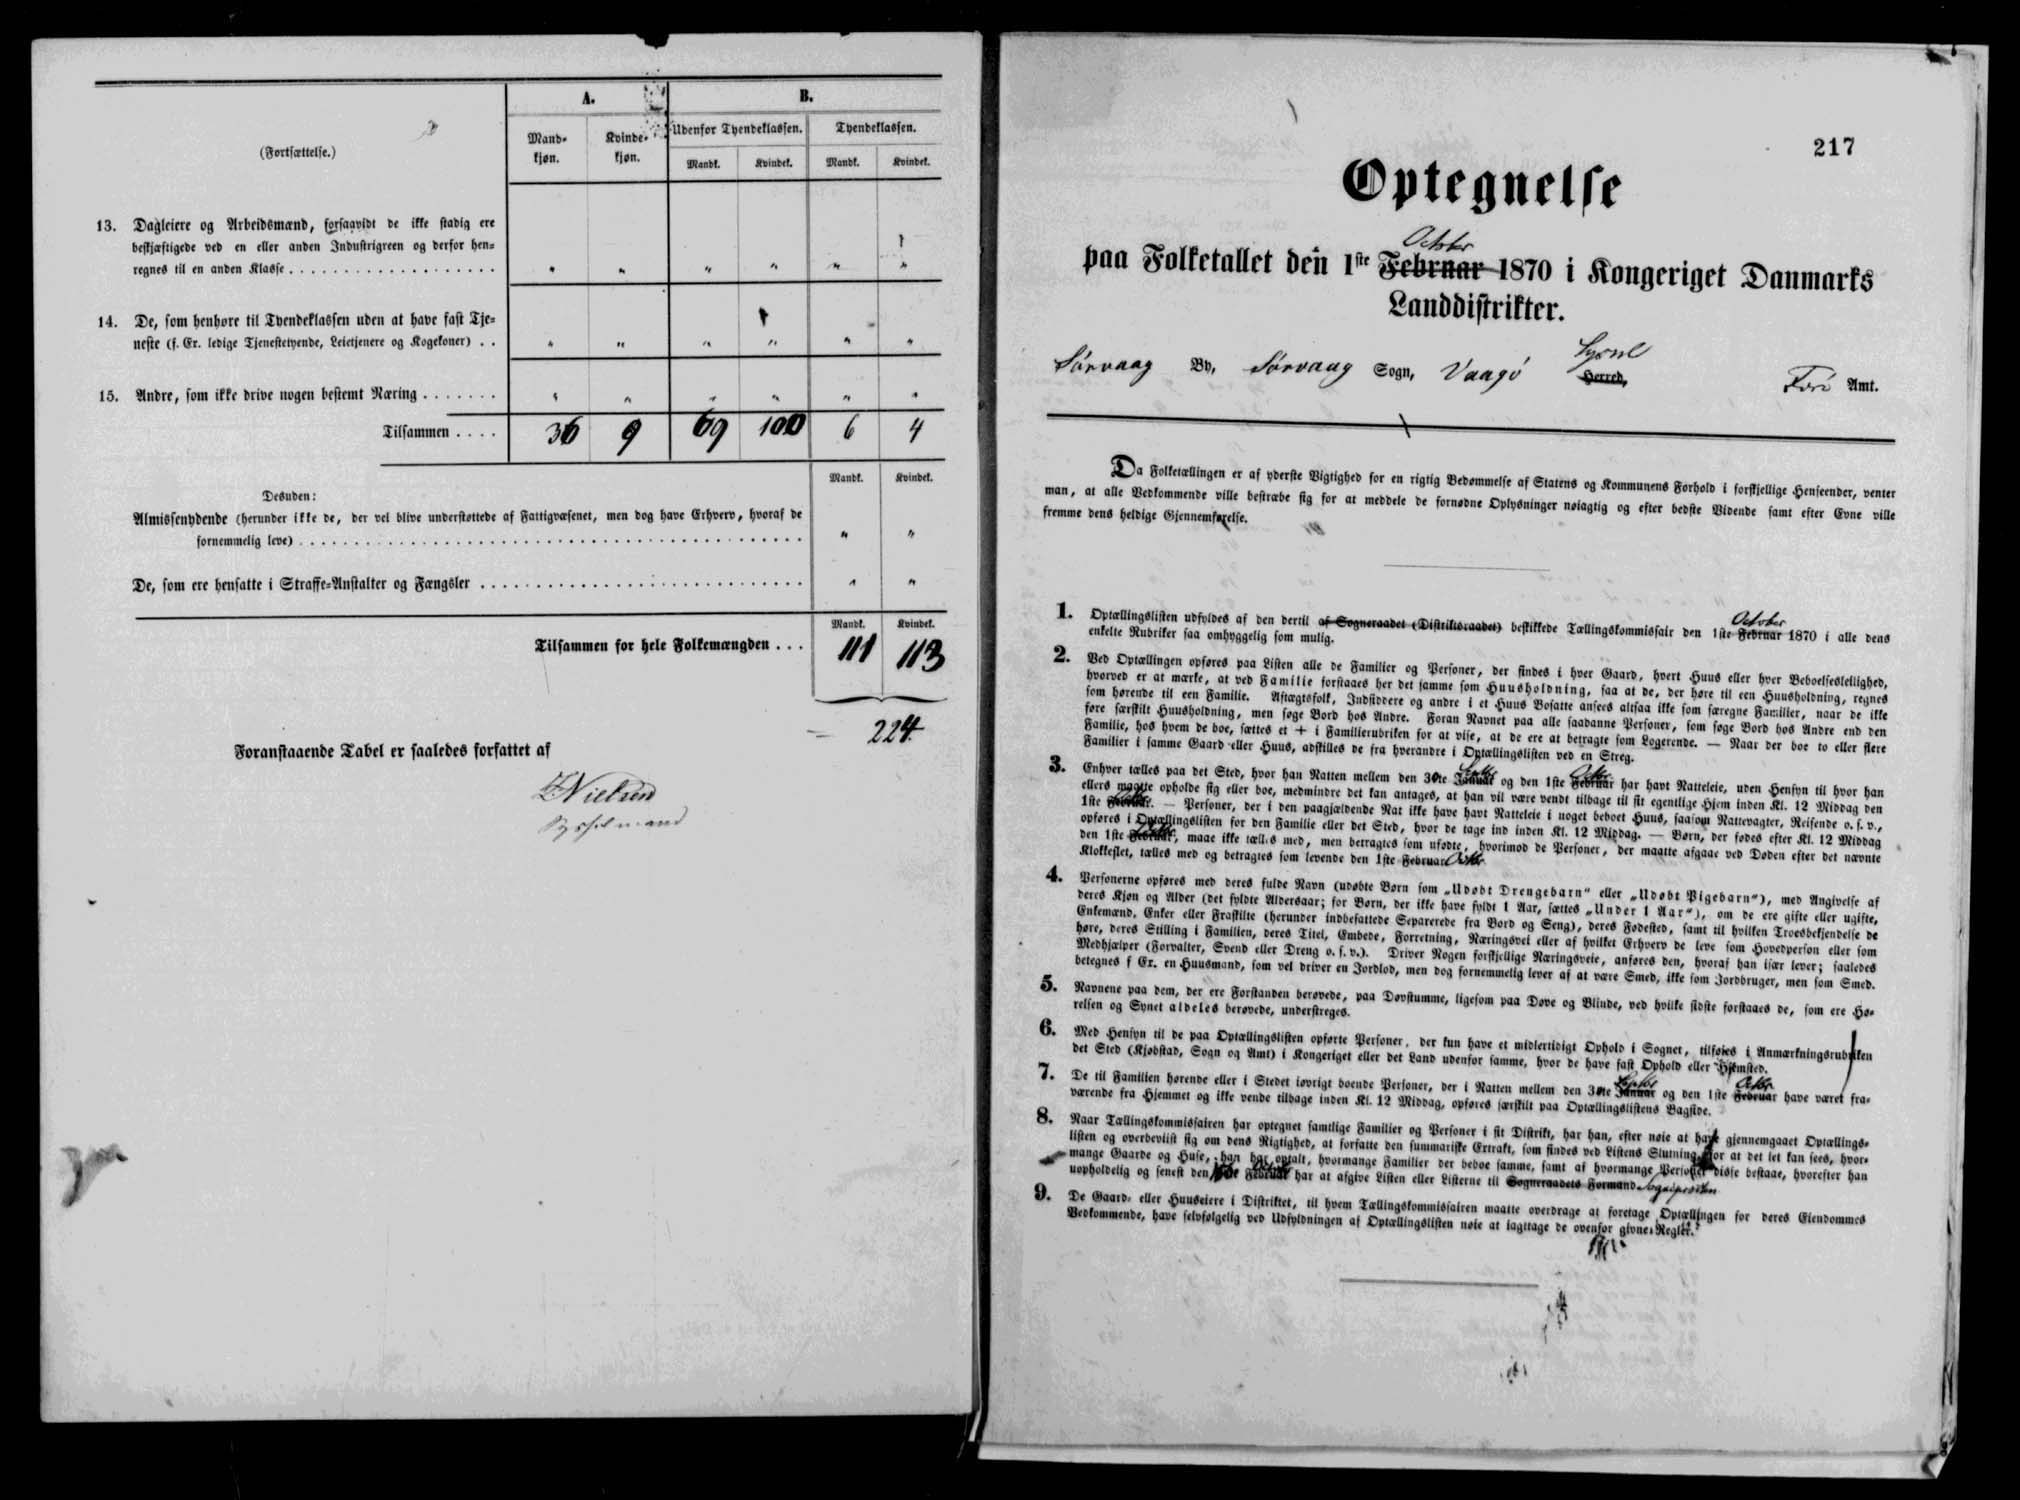 (Fortsættelse.)
A.
B.
Mand-
kjøn.
Kvinde-
kjøn.
Udenfor Tyendeklassen.
Tyendeklassen.
Mandk.
Kvindek.
Mandk.
Kvindek.
13. Dagleiere og Arbeidsmænd, forsaavidt de ikke stadig ere
beskjæftigede ved en eller anden Industrigreen og derfor hen-
regnes til en anden Klasse . . . . " " " " " "
14. De, som henhøre til Tyendeklassen uden at have fast Tje-
neste (f. Ex. ledige Tjenestetyende, Leietjenere og Kogekoner) . . " " " " " "
15. Andre, som ikke drive nogen bestemt Næring . . . . " " " " " "
Tilsammen . . . . 36 9 69 100 6 4
Mandk.
Kvindek.
Desuden:
Almissenydende (herunder ikke de, der vel blive understøttede af Fattigvæsenet, men dog have Erhverv, hvoraf de
fornemmelig leve) . . . . " "
De, som ere hensatte i Straffe-Anstalter og Fængsler . . . . " "
Mandk.
Kvindek.
Tilsammen for hele Folkemængden . . . 111 113
= 224.
Foranstaaende Tabel er saaledes forfattet af
Nielsen
Sysselmand
217
Optegnelse
October
paa Folketallet den 1ste Februar 1870 i Kongeriget Danmarks
Landdistrikter.
Syssel
Sörvaag By, Sörvaag Sogn, Vaagö Herred, Færö Amt.
Da Folketællingen er af yderste Vigtighed for en rigtig Bedømmelse af Statens og Kommunens Forhold i forskjellige Henseender, venter
man, at alle Vedkommende ville bestræbe sig for at meddele de fornødne Oplysninger nøiagtig og efter bedste Vidende samt efter Evne ville
fremme dens heldige Gjennemførelse.
October
1. Optællingslisten udfyldes af den dertil af Sogneraadet (Distriktsraadet) beskikkede Tællingskommissair den 1ste Februar 1870 i alle dens
enkelte Rubriker saa omhyggelig som mulig.
2. Ved Optællingen opføres paa Listen alle de Familier og Personer, der findes i hver Gaard, hvert Huus eller hver Beboelsesleilighed,
hvorved er at mærke, at ved Familie forstaaes her det samme som Huusholdning, saa at de, der høre til een Huusholdning, regnes
som hørende til een Familie. Aftægtsfolk, Indsiddere og andre i et Huus Bosatte ansees altsaa ikke som særegne Familier, naar de ikke
føre særskilt Huusholdning, men søge Bord hos Andre. Foran Navnet paa alle saadanne Personer, som søge Bord hos Andre end den
Familie, hos hvem de boe, sættes et + i Familierubriken for at vise, at de ere at betragte som Logerende. — Naar der boe to eller flere
Familier i samme Gaard eller Huus, adskilles de fra hverandre i Optællingslisten ved en Streg.
Septbr Octbr
3. Enhver tælles paa det Sted, hvor han Natten mellem den 30te Januar og den 1ste Februar har havt Natteleie, uden Hensyn til hvor han
ellers maatte opholde sig eller boe, medmindre det kan antages, at han vil være vendt tilbage til sit egentlige Hjem inden Kl. 12 Middag den
Octbr
1ste Februar. — Personer, der i den paagjældende Nat ikke have havt Natteleie i noget beboet Huus, saasom Nattevagter, Reisende o. s. v.,
opføres i Optællingslisten for den Familie eller det Sted, hvor de tage ind inden Kl. 12 Middag. — Børn, der fødes efter Kl. 12 Middag
Octbr
den 1ste Februar, maae ikke tælles med, men betragtes som ufødte, hvorimod de Personer, der maatte afgaae ved Døden efter det nævnte
Klokkeslet, tælles med og betragtes som levende den 1ste Februar Octbr.
4. Personerne opføres med deres fulde Navn (udøbte Børn som „Udøbt Drengebarn" eller „Udøbt Pigebarn"), med Angivelse af
deres Kjøn og Alder (det fyldte Aldersaar; for Børn, der ikke have fyldt 1 Aar, sættes „Under 1 Aar"), om de ere gifte eller ugifte,
Enkemænd, Enker eller Fraskilte (herunder indbefattede Separerede fra Bord og Seng), deres Fødested, samt til hvilken Troesbekjendelse de
høre, deres Stilling i Familien, deres Titel, Embede, Forretning, Næringsvei eller af hvilket Erhverv de leve som Hovedperson eller som
Medhjælper (Forvalter, Svend eller Dreng o. s. v.). Driver Nogen forskjellige Næringsveie, anføres den, hvoraf han især lever; saaledes
betegnes f Ex. en Huusmand, som vel driver en Jordlod, men dog fornemmelig lever af at være Smed, ikke som Jordbruger, men som Smed.
5. Navnene paa dem, der ere Forstanden berøvede, paa Døvstumme, ligesom paa Døve og Blinde, ved hvilke sidste forstaaes de, som ere Hø-
relsen og Synet aldeles berøvede, understreges.
6. Med Hensyn til de paa Optællingslisten opførte Personer, der kun have et midlertidigt Ophold i Sognet, tilføies i Anmærkningsrubriken
det Sted (Kjøbstad, Sogn og Amt) i Kongeriget eller det Land udenfor samme, hvor de have fast Ophold eller Hjemsted.
Septbr Octbr
7. De til Familien hørende eller i Stedet iøvrigt boende Personer, der i Natten mellem den 30te Januar og den 1ste Februar have været fra-
værende fra Hjemmet og ikke vende tilbage inden Kl. 12 Middag, opføres særskilt paa Optællingslistens Bagside.
8. Naar Tællingskommissairen har optegnet samtlige Familier og Personer i sit Distrikt, har han, efter nøie at have gjennemgaaet Optællings-
listen og overbeviist sig om dens Rigtighed, at forfatte den summariske Extrakt, som findes ved Listens Slutning, for at det let kan sees, hvor-
mange Gaarde og Huse, han har optalt, hvormange Familier der beboe samme, samt af hvormange Personer disse bestaae, hvorefter han
Octbr
uopholdelig og senest den Februar har at afgive Listen eller Listerne til Sogneraadets Formand Sognepræsten
9. De Gaard- eller Huuseiere i Distriktet, til hvem Tællingskommissairen maatte overdrage at foretage Optællingen for deres Eiendommes
Vedkommende, have selvfølgelig ved Udfyldningen af Optællingslisten nøie at iagttage de ovenfor givne Regler.